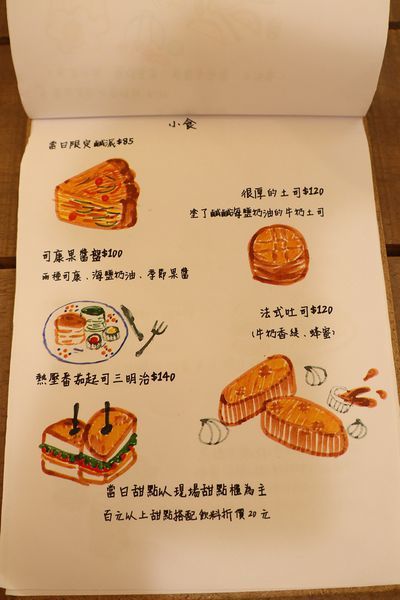 小食
當日限定鹹派$85
很厚的土司$120
塗了鹹鹹海鹽奶油的牛奶土司
可康果醬盤$100
兩種可康、海鹽奶油、季節果醬
法式吐司$120
(牛奶香緹、蜂蜜)
熱壓番茄起司三明治$140
當日甜點以現場甜點櫃為主
百元以上甜點搭配飲料折價20元